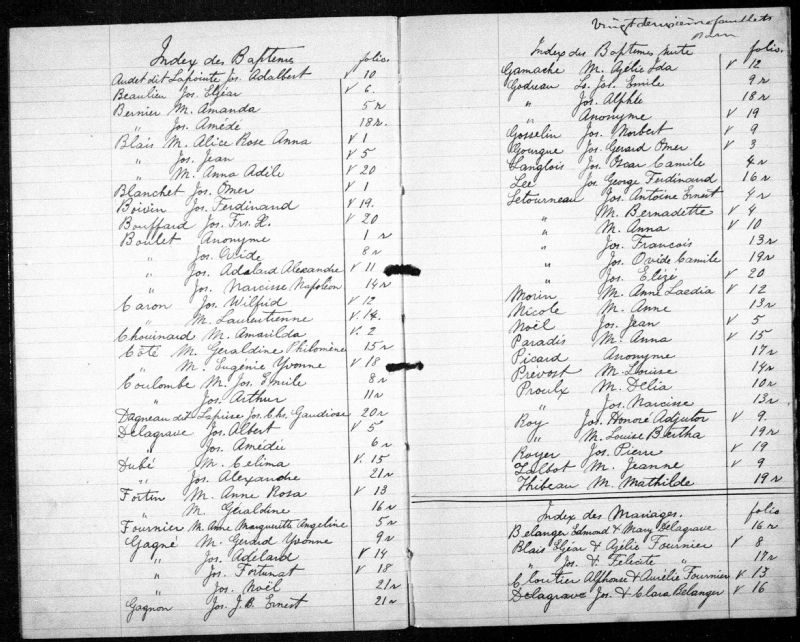 Index des Baptemes folio.
Audet dit Lapointe Jos. Adalbert v 10
Beaulieu Jos. Elzéar v 6.
Bernier M. Amanda 5 r
" Jos. Amédé 18 r.
Blais M. Alice Rose Anna v 1
" Jos. Jean v 5
" M. Anna Adéle v 20
Blanchet Jos. Omer v 1
Boivin Jos. Ferdinand v 19.
Bouffard Jos. Frs. X. v 20
Boulet Anonyme 1 r
" Jos. Ovide 8 r
" Jos. Adelard Alexandre v 11
" Jos. Narcisse Napoleon 14 r
Caron Jos. Wilfrid v 12
" M. Laurentienne v 14.
Chouinard M. Amarilda v. 2
Côté M. Geraldine Philomène 15 r
" M. Eugénie Yvonne v 18
Coulombe M. Jos. Emile 8 r
" Jos. Arthur 11 r
Dagneau dit Laprise Jos. Chs. Gaudiose 20 r
Delagrave Jos. Albert v 5
" Jos. Amédée 6 r
Dubé M. Celima v. 15
" Jos. Alexandre 21 r
Fortin M. Anne Rosa v 13
" M. Géraldine 16 r
Fournier M. Anne Marguerite Angeline 5 r
Gagné M. Gerard Yvonne 9 r
" Jos. Adelard v 14
" Jos. Fortunat v 18
" Jos. Noël 21 r
Gagnon Jos. J. B. Ernest 21 r
Vingt deuxième feuillets
Index des Baptemes suite folio.
Gamache M. Azélie Ida v 12
Godreau Ls. Jos. Emile 9 r
" Jos. Alphée 18 r
" Anonyme v 19
Gosselin Jos. Norbert v 9
Gourgue Jos. Gerard Omer v 3
Langlois Jos. Oscar Camile 4 r
Lee Jos George Ferdinand 16 r
Letourneau Jos. Antoine Ernest 4 r
" M. Bernadette v 4
" M. Anna v 10
" Jos. Francois 13 r
" Jos. Ovide Camile 19 r
" Jos. Elizé v 20
Morin M. Anne Laedia v 12
Nicole M. Anne 13 r
Noël Jos. Jean v 5
Paradis M. Anna v 15
Picard Anonyme 17 r
Prevost M. Louise 14 r
Proulx M. Délia 10 r
" Jos. Narcisse 13 r
Roy Jos. Honoré Adjutor v 9.
" M. Louise Bertha 19 r
Royer Jos. Pierre v 19
Talbot M. Jeanne v 9
Thibeau M. Mathilde 19 r
Index des Mariages. folio
Belanger Edmond & Mary Delagrave 16 r
Blais Elzéar & Azélie Fournier v 8
" Jos. & Felicite " 17 r
Cloutier Alphonse & Aurélie Fournier v 13
Delagrave Jos. & Clara Belanger v 16